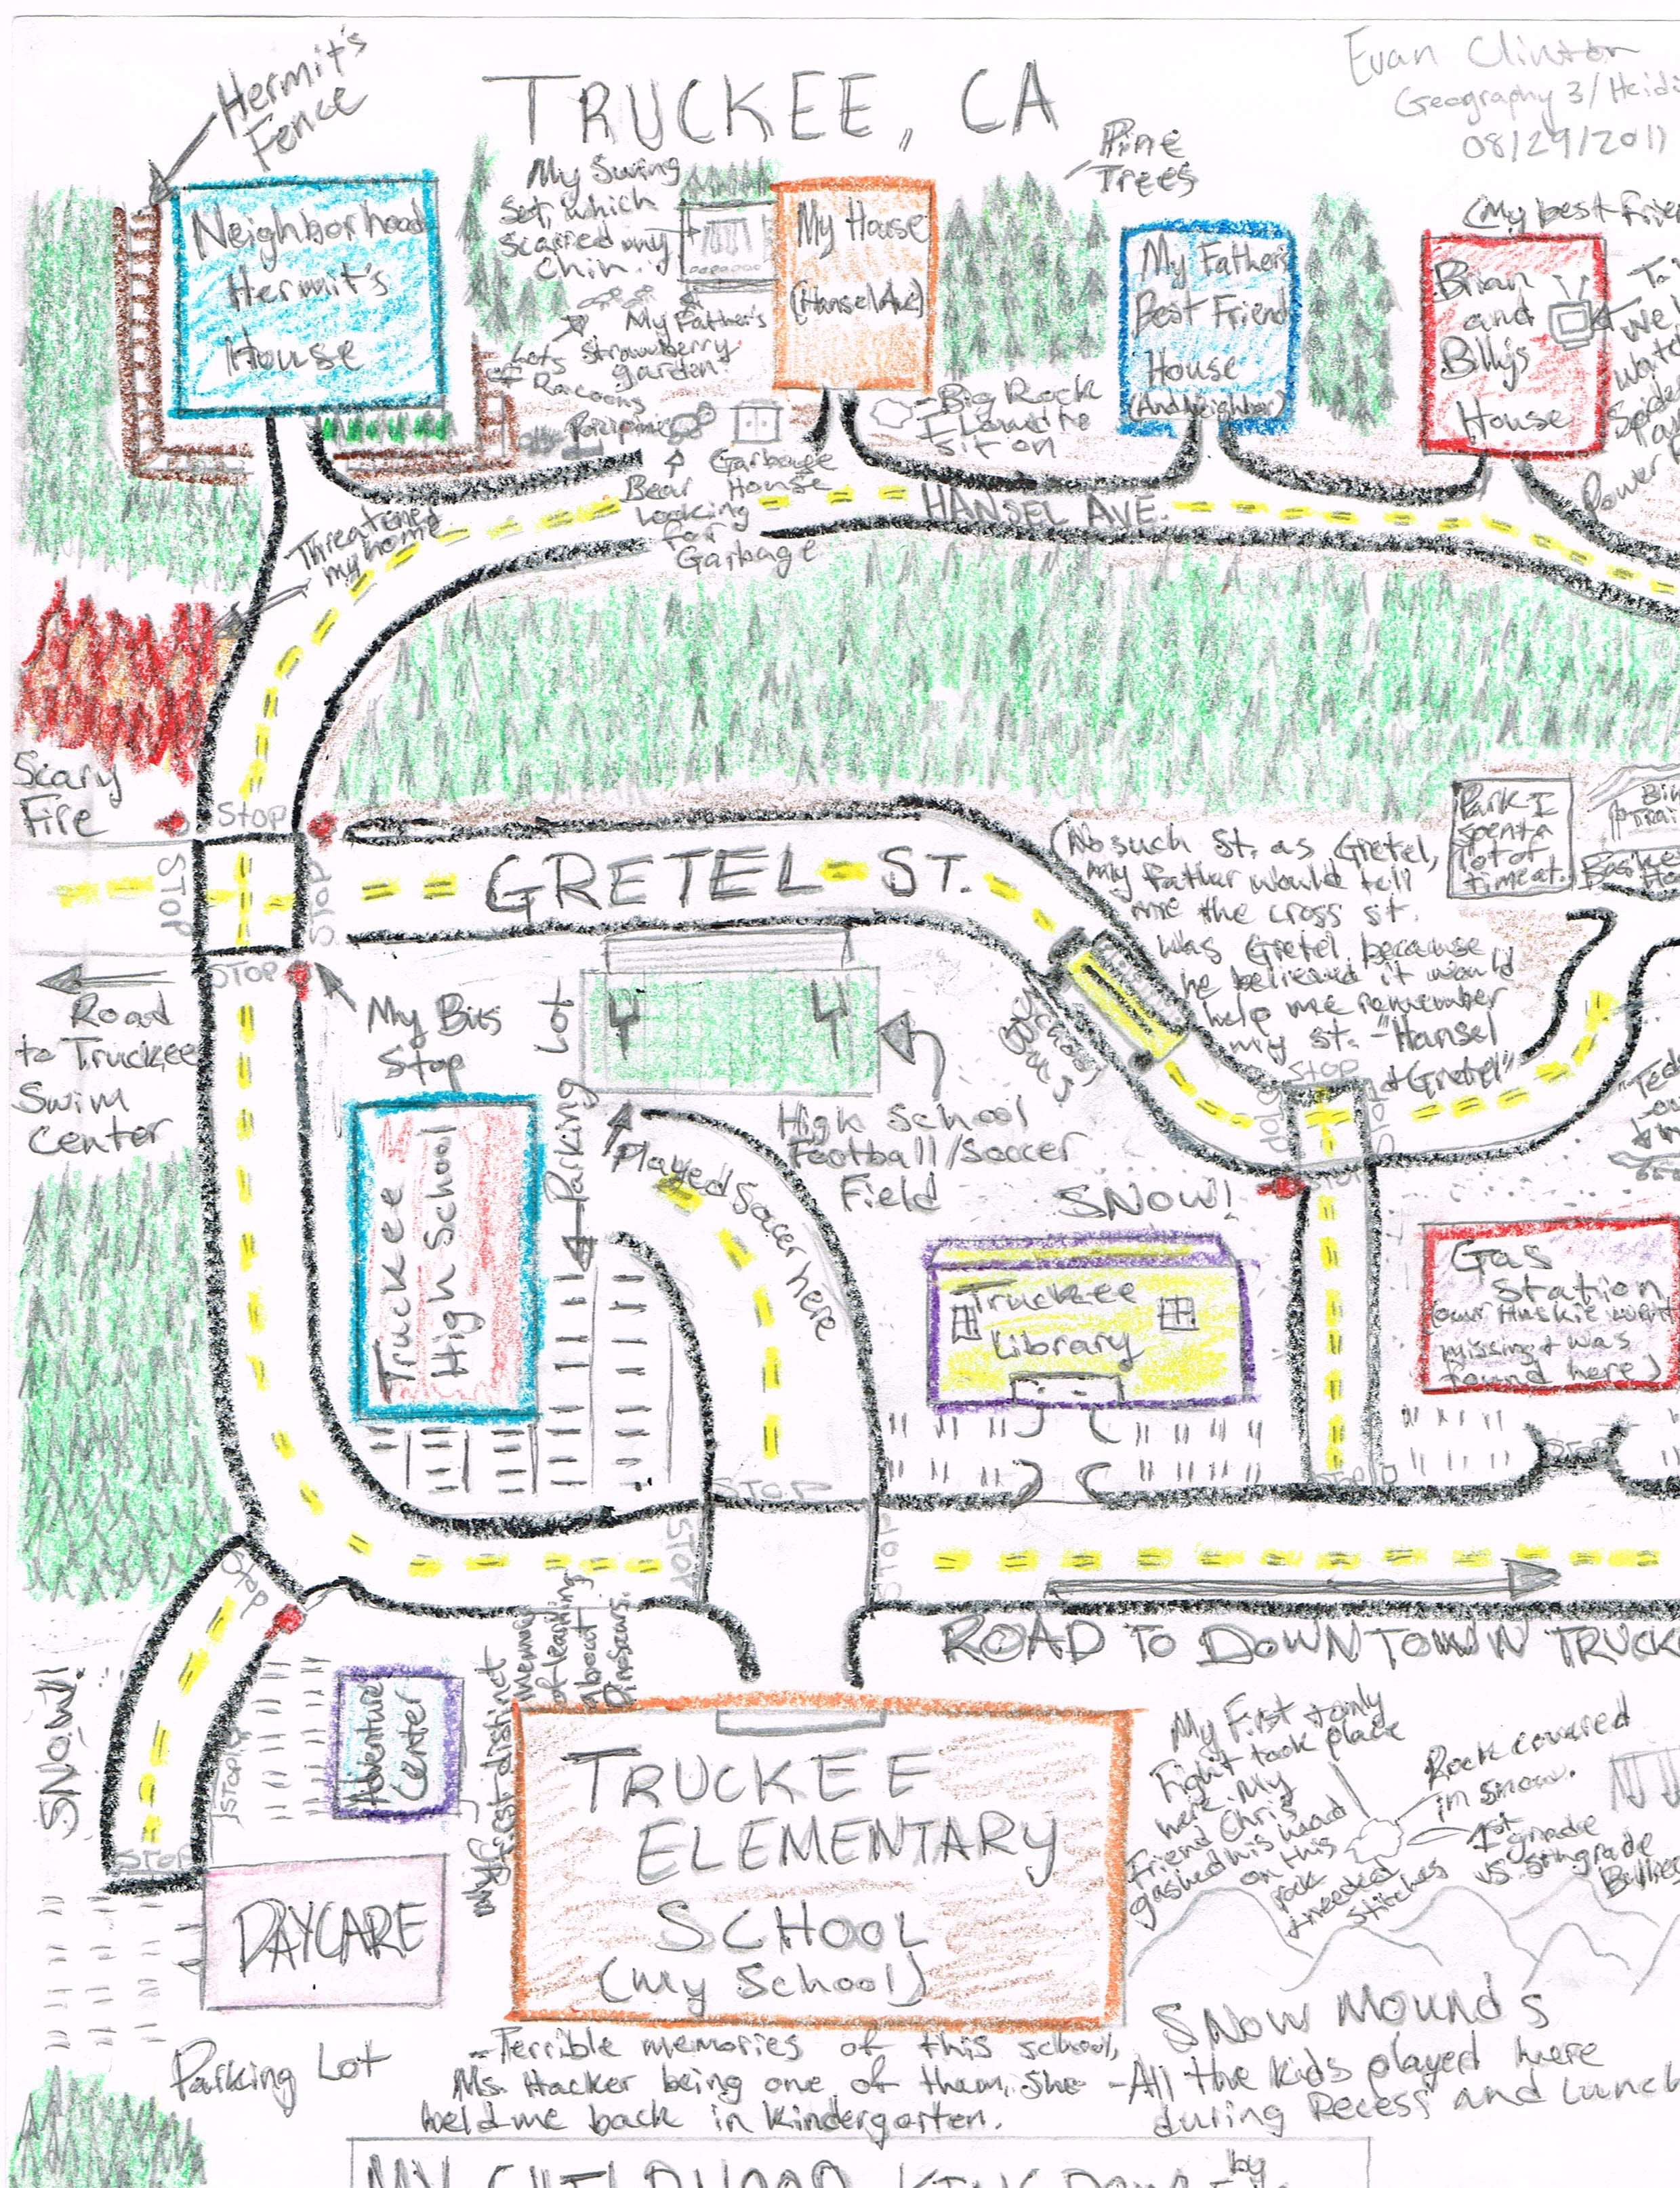 Evan Clinton
Geography 3/Heidi
08/29/2011
TRUCKEE, CA
Hermit's
Fence
Pine
Trees
Neighborhood
Hermit's
House
My Swing
Set, which
scarred my
Chin.
My House
(Hansel Ave)
My Father's
Best Friend
House
(And Neighbor)
(My best
Brian
and
Billy's
House
My Father's
Strawberry
garden
Lots
of
Racoons
Porcipine
Garbage
House
Bear
Looking
for
Garbage
Big Rock
I
sit on
HANSEL AVE.
Threatened
my home
Scary
Fire
Stop
STOP
STOP
STOP
GRETEL ST.
(No such St. as Gretel,
my father would tell
me the cross st.
was Gretel because
he believed it would
help me remember
my st. - "Hansel
& Gretel"
Park I
spent a
lot of
time at.
Road
to Truckee
Swim
Center
My Bus
Stop
Parking Lot
High School
Football/Soccer
Field
Played Soccer here
Truckee
High School
SNOW!
STOP
STOP
Truckee
Library
Gas
Station
(our Huskie went
missing & was
found here)
STOP
STOP
STOP
STOP
ROAD TO DOWNTOWN
STOP
SNOW!!
STOP
STOP
Adventure
Center
My first distinct
memory
of learning
About
Dinosaurs.
DAYCARE
Parking Lot
TRUCKEE
ELEMENTARY
SCHOOL
(my School)
- Terrible memories of this school,
Ms. Hacker being one of them, she
held me back in Kindergarten.
My First & only
Fight took place
here. My
Friend Chris
gashed his head
on this
rock
& needed
stitches
Rock covered
in snow.
1st grade
vs. 5th grade
Bullies
SNOW MOUNDS
- All the kids played here
during Recess and Lunch
by
MY CHILDHOOD